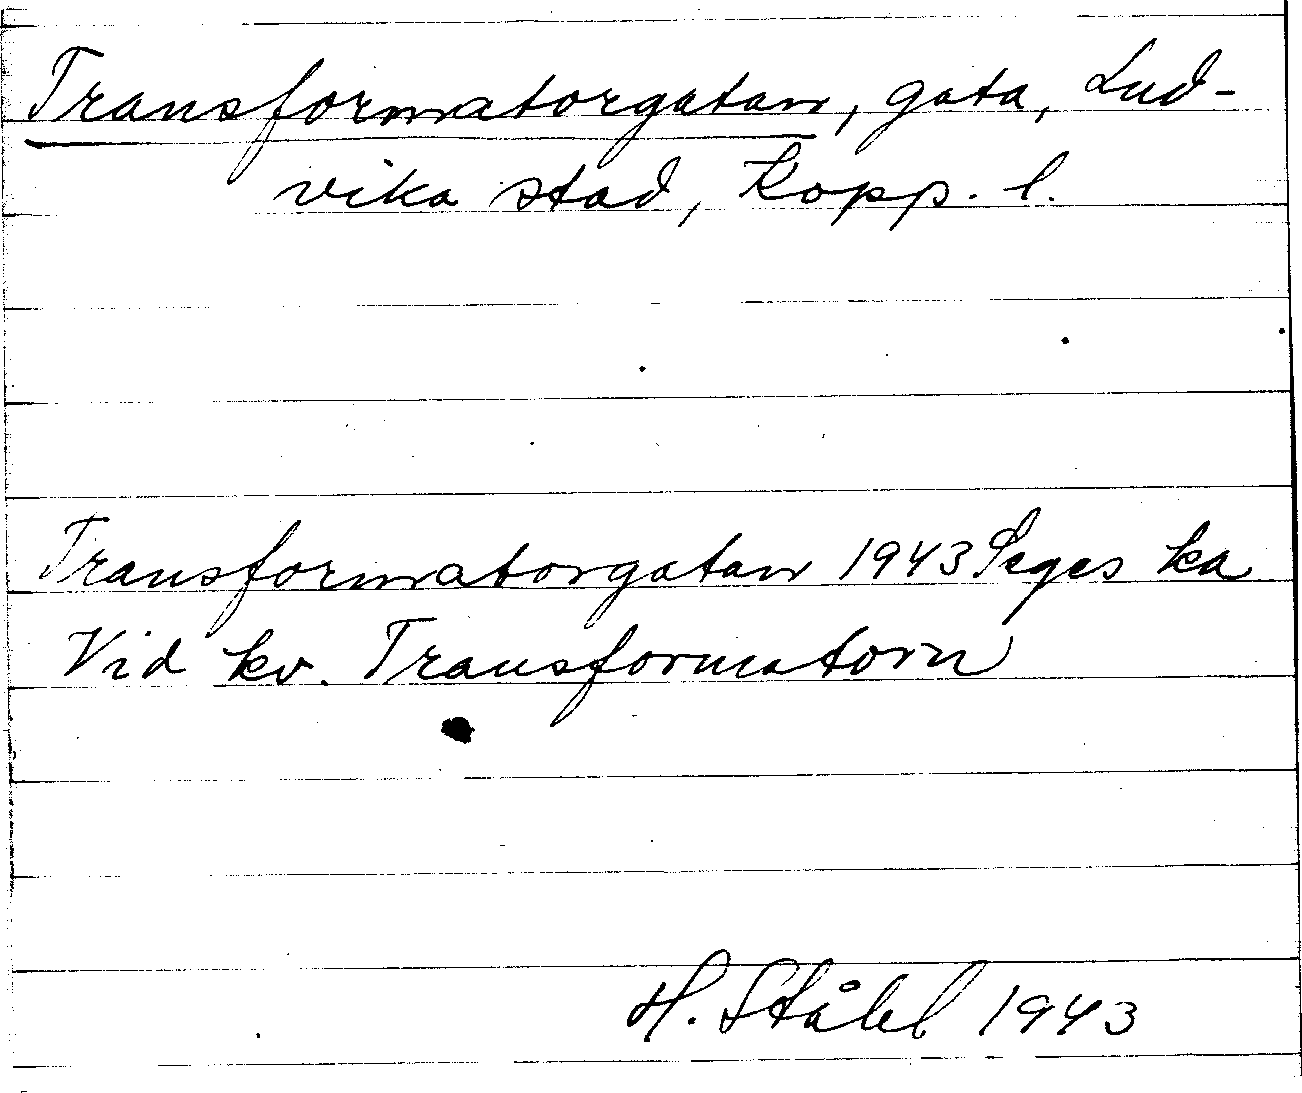 Transformatorgatan, gata, Lud-
vika stad, Kopp. l.
Transformatorgatan 1943 Seges ka
Vid kv. Transformatorn
H. Ståhl 1943